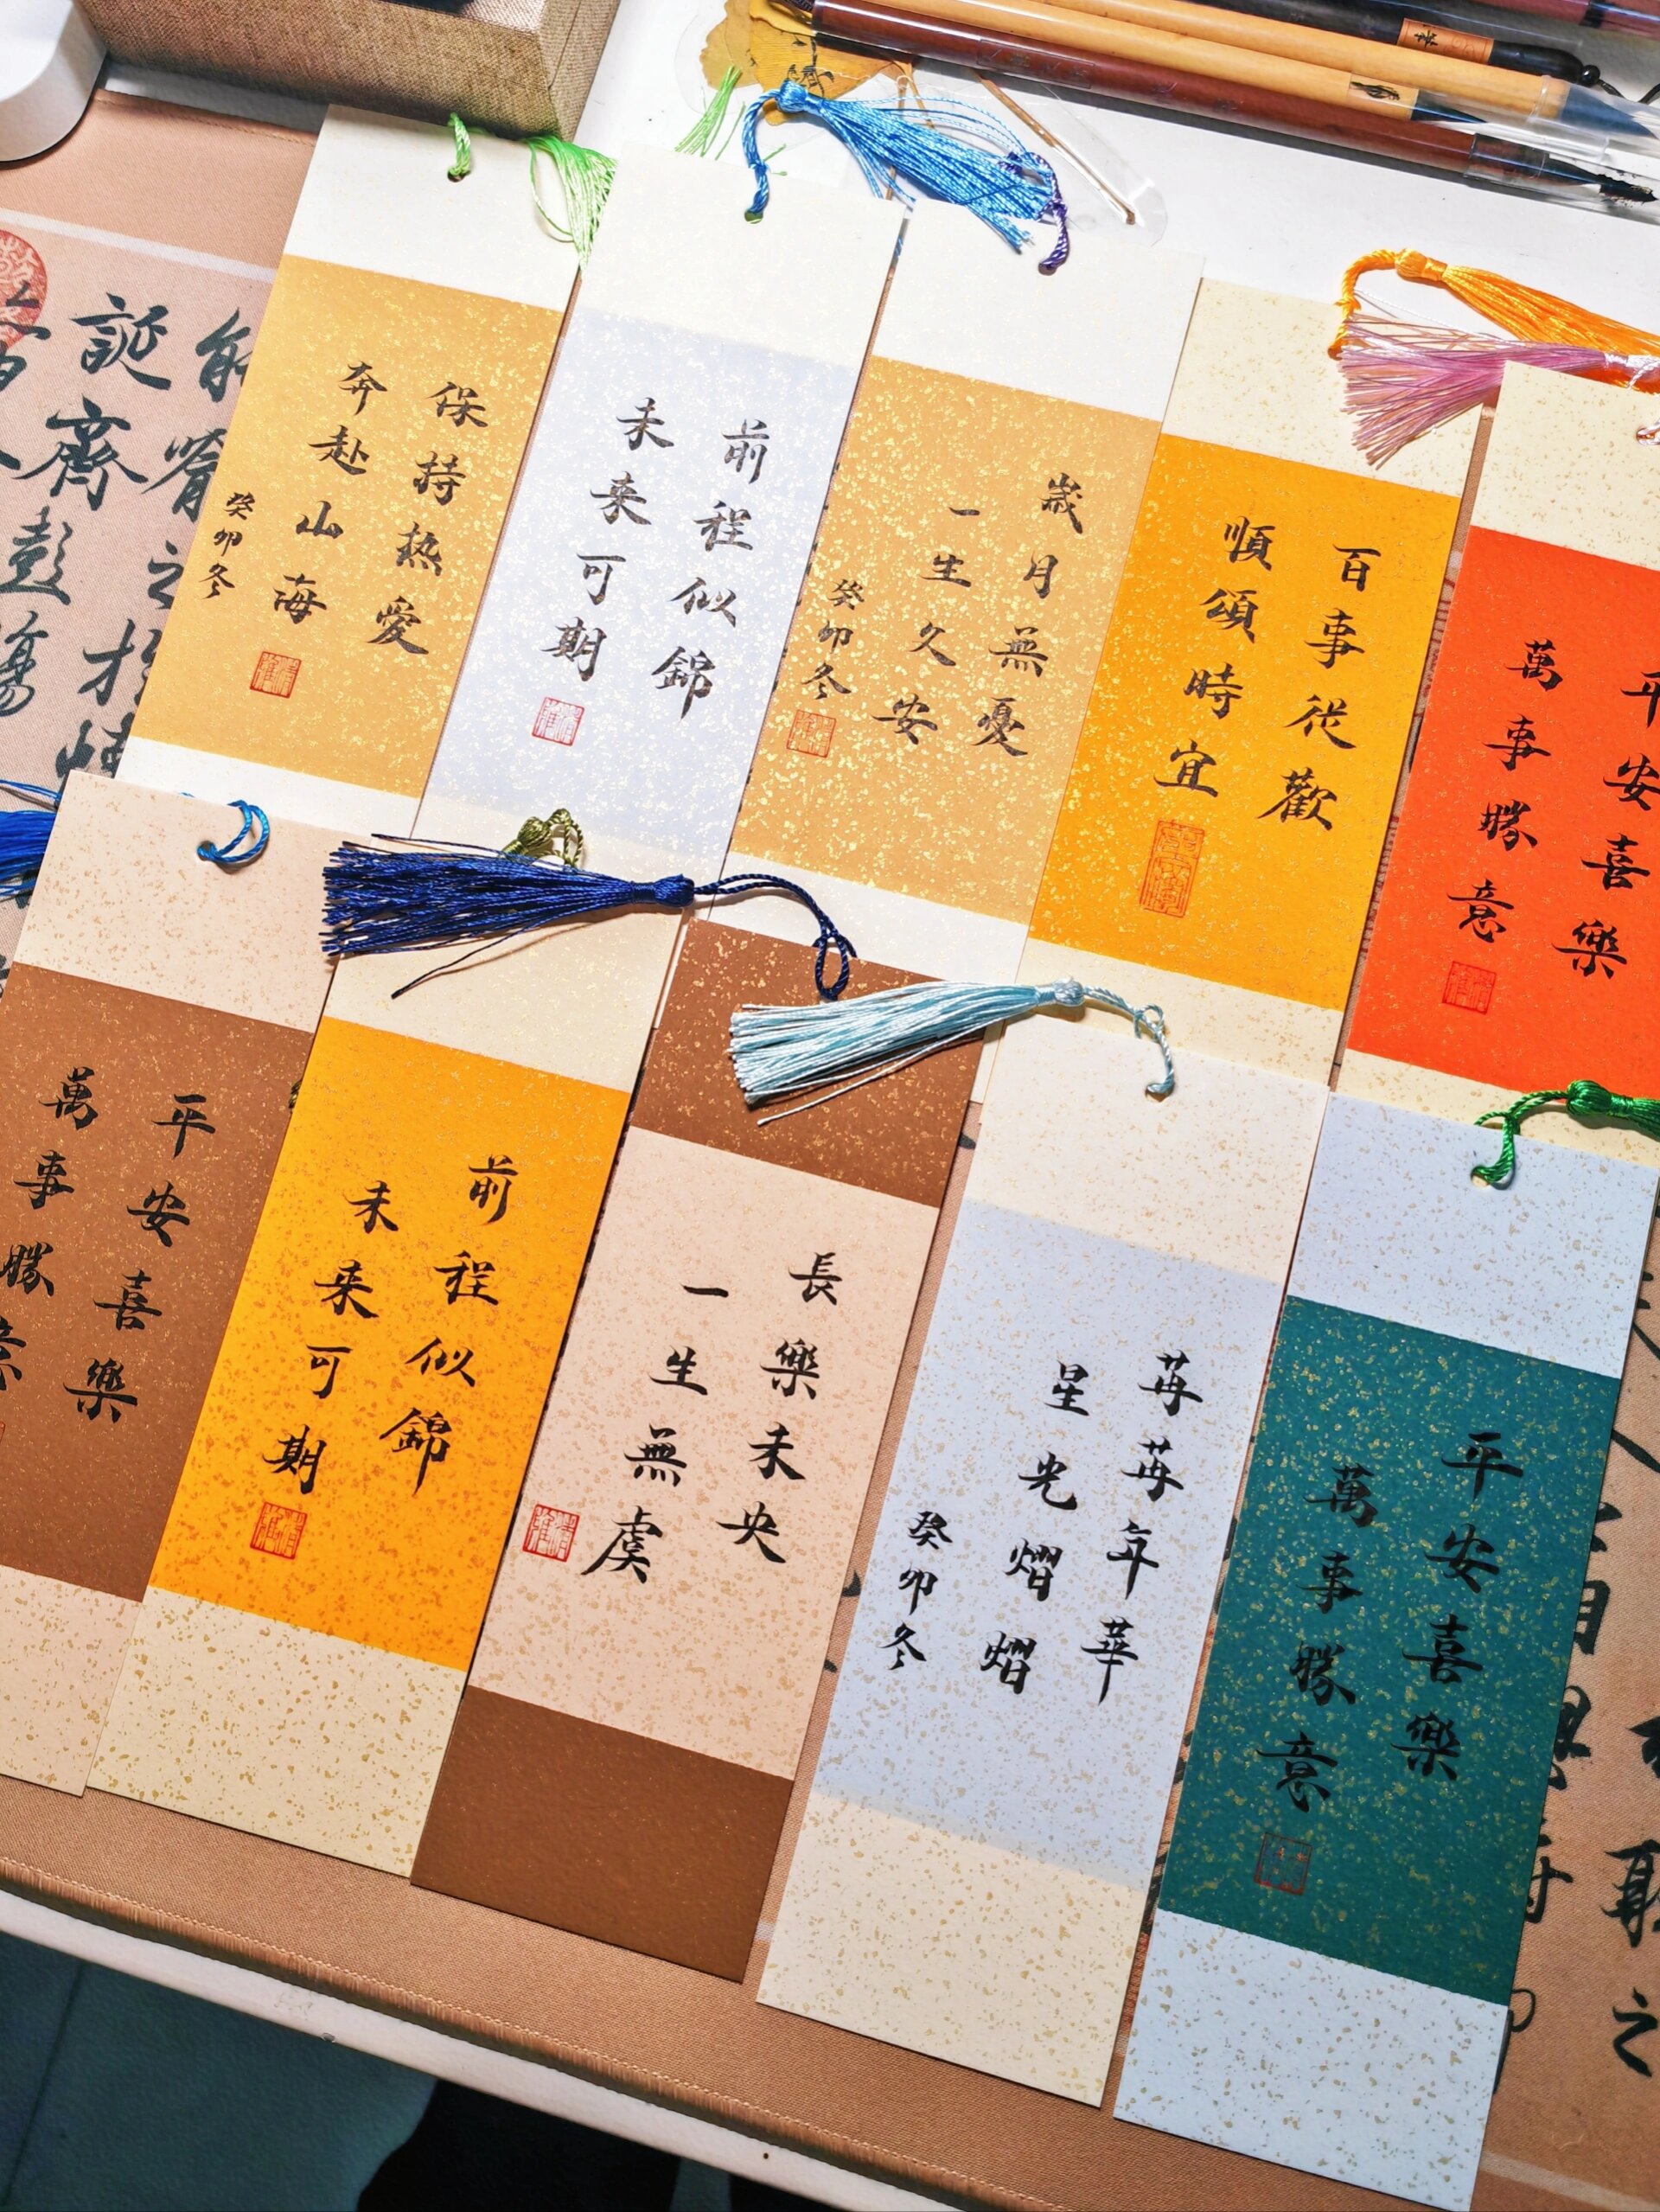 保持热爱
奔赴山海
癸卯冬
前程似錦
未来可期
歲月無憂
一生久安
癸卯冬
百事從歡
順頌時宜
平安喜樂
萬事勝意
平安喜樂
萬事勝意
前程似錦
未来可期
長樂未央
一生無虞
苒苒年華
星光熠熠
癸卯冬
平安喜樂
萬事勝意
誕
齊
彭
殤
能
之